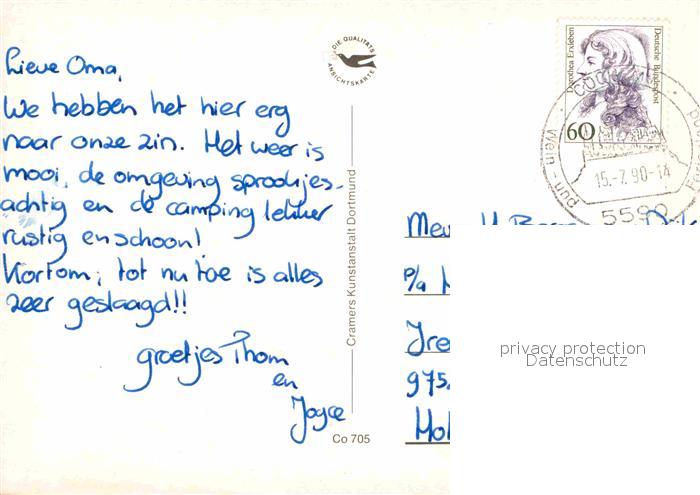 Lieve Oma,
We hebben het hier erg
naar onze zin. Het weer is
mooi, de omgeving sprookjes-
achtig en de camping lekker
rustig en schoon!
Kortom; tot nu toe is alles
zeer geslaagd!!
groetjes Thom
en
Joyce
DIE QUALITÄTS
ANSICHTSKARTE
Cramers Kunstanstalt Dortmund
Co 705
Dorothea Erxleben
Deutsche Bundespost
60
Wein - und
15.-7.90-14
5590
p/a
975
privacy protection
Datenschutz